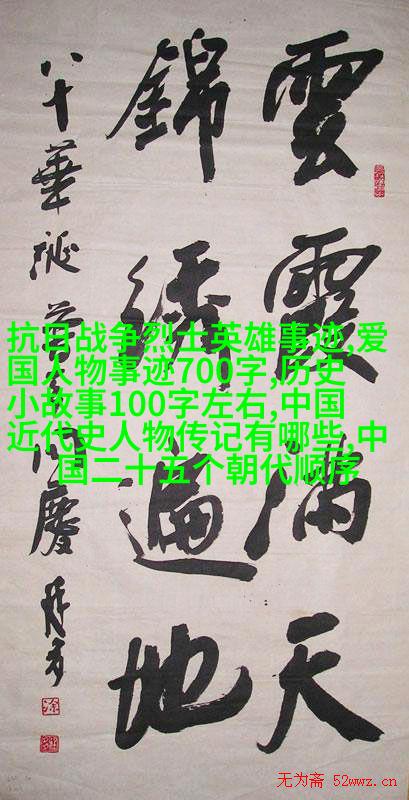 雲霞滿天
錦繡遍地
八十華誕同慶
抗日战争烈士英雄事迹,爱
国人物事迹700字,历史
小故事100字左右,中国
近代史人物传记有哪些,中
国二十五个朝代顺序
无为斋 52wwz.cn